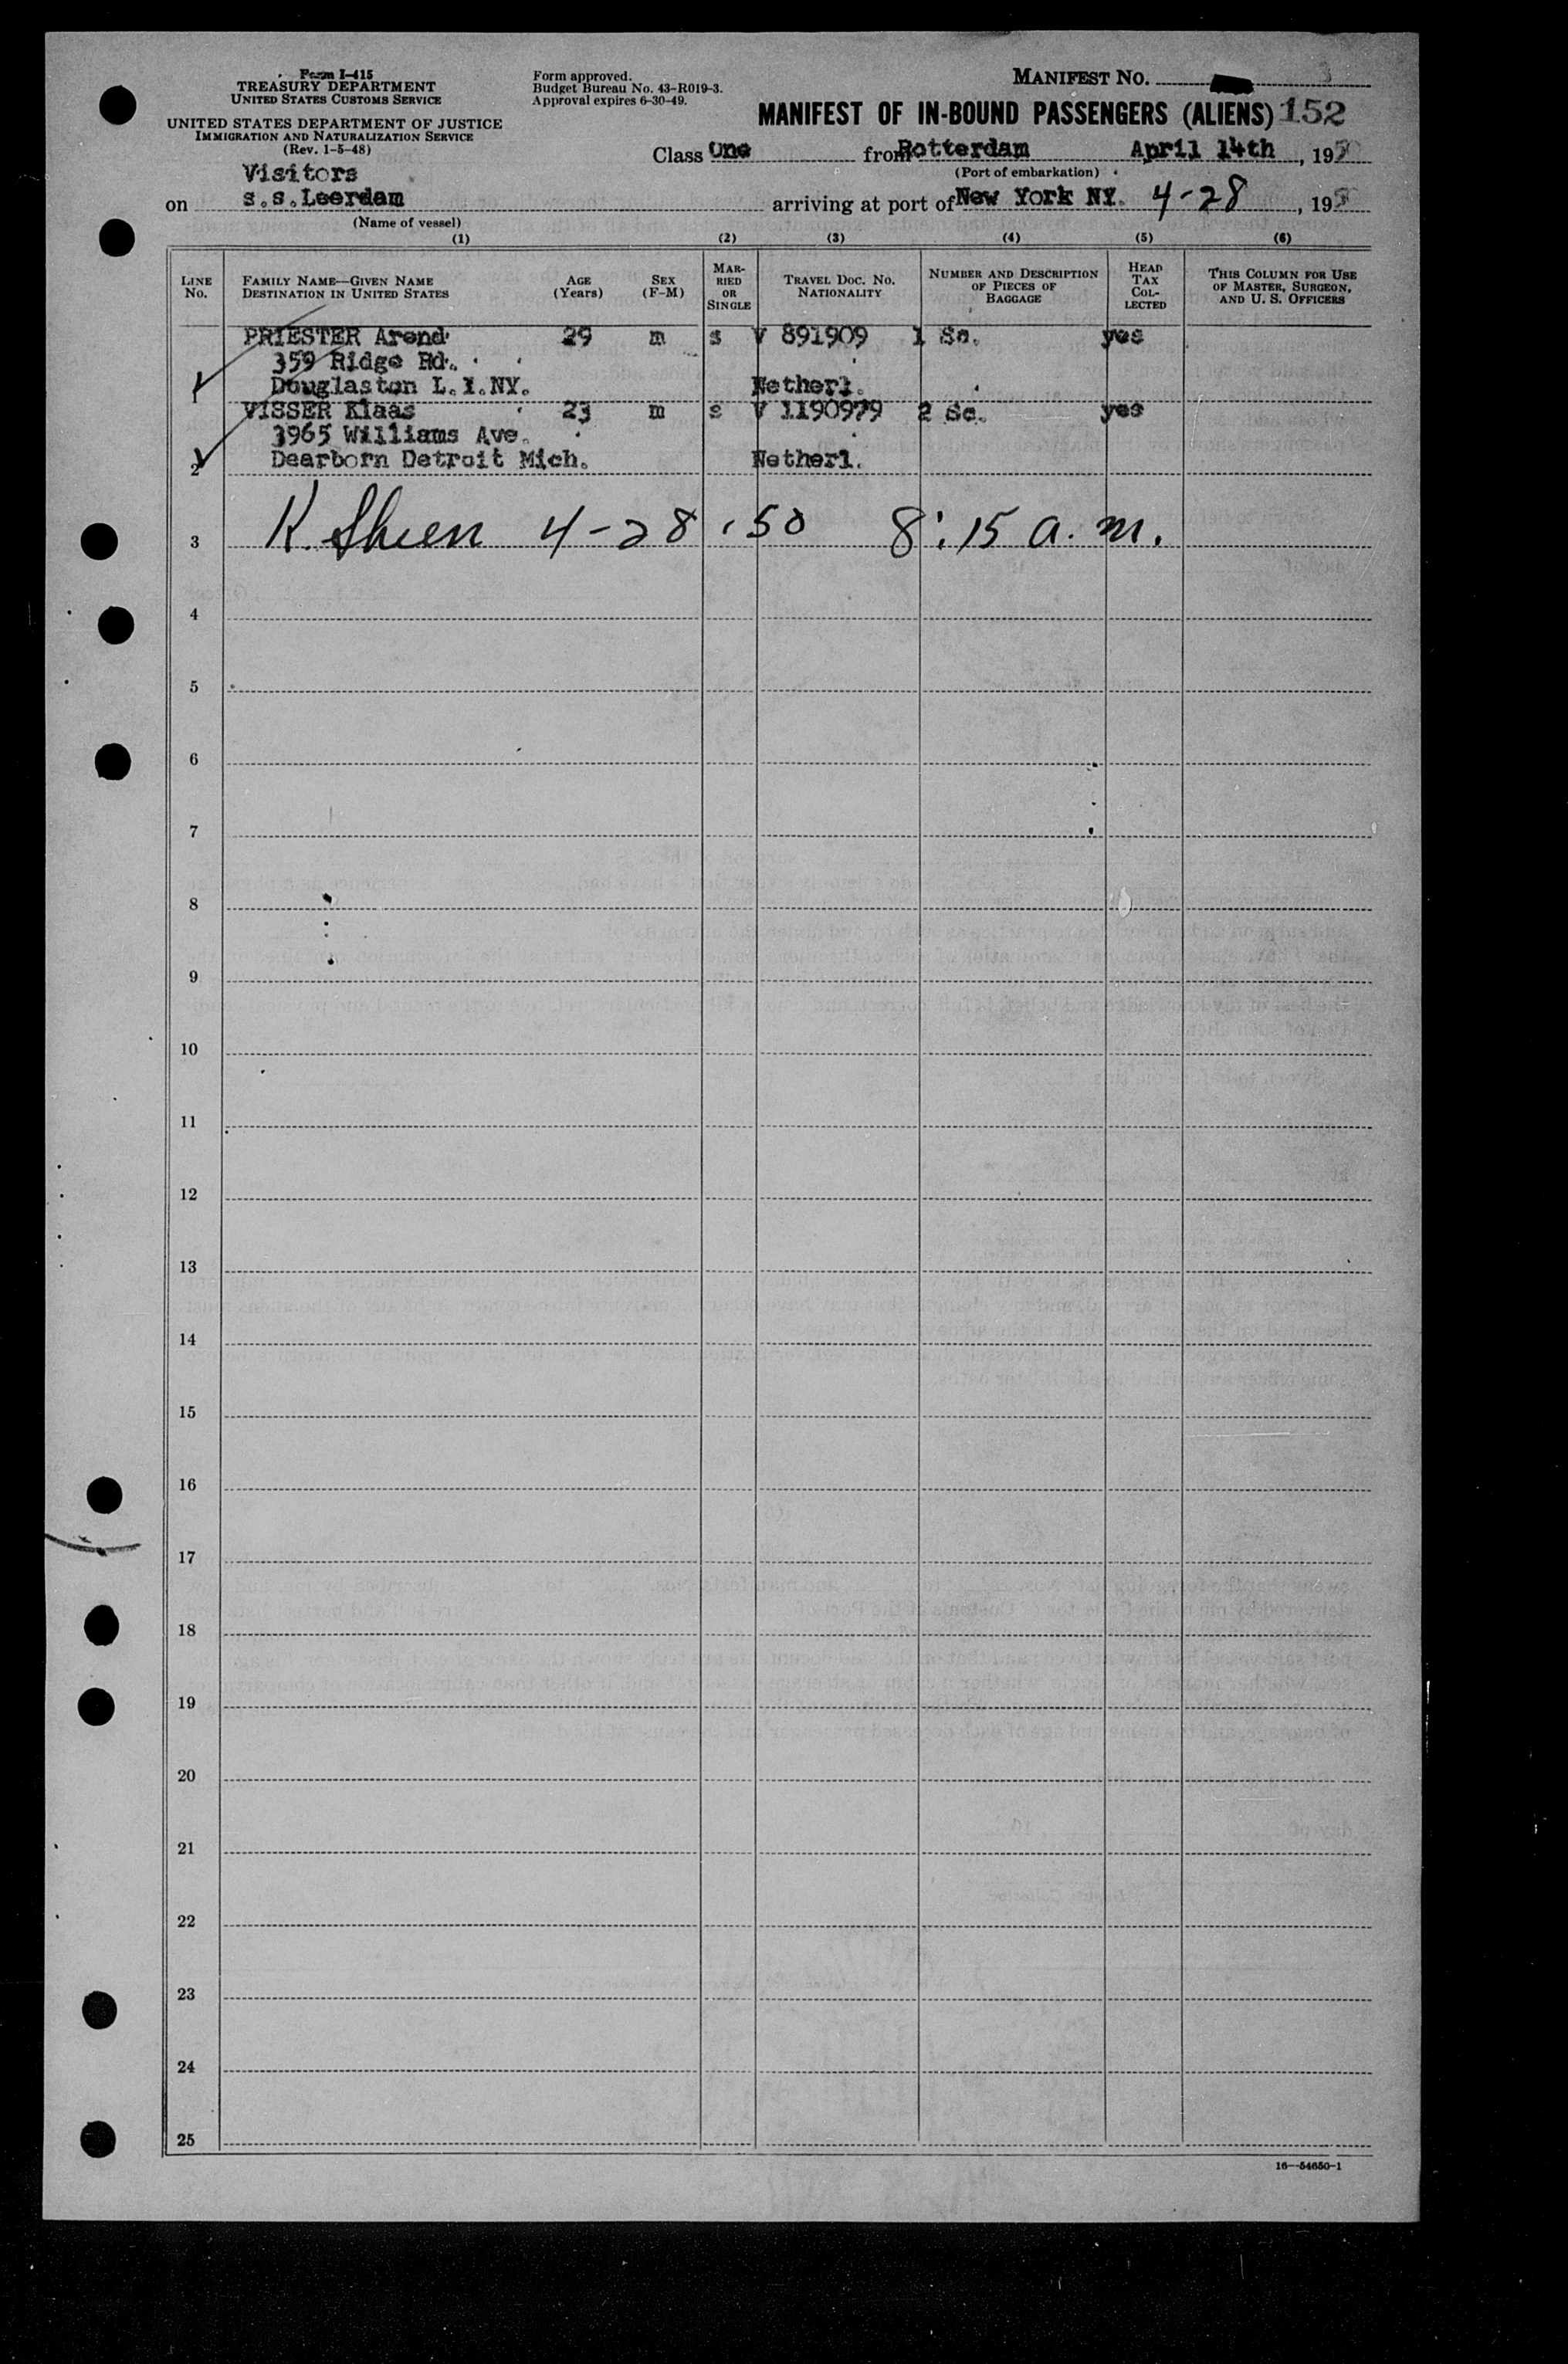 Form I-415
TREASURY DEPARTMENT
UNITED STATES CUSTOMS SERVICE
UNITED STATES DEPARTMENT OF JUSTICE
IMMIGRATION AND NATURALIZATION SERVICE
(Rev. 1-5-48)
Form approved.
Budget Bureau No. 43-R019-3.
Approval expires 6-30-49.
MANIFEST NO. 3
MANIFEST OF IN-BOUND PASSENGERS (ALIENS) 152
Class One from Rotterdam April 14th, 1950
(Port of embarkation)
Visitors
on s.s.Leerdam arriving at port of New York NY. 4-28, 1950
(Name of vessel)
(1) (2) (3) (4) (5) (6)
LINE NO. FAMILY NAME—GIVEN NAME DESTINATION IN UNITED STATES AGE (Years) SEX (F-M) MARRIED OR SINGLE TRAVEL DOC. NO. NATIONALITY NUMBER AND DESCRIPTION OF PIECES OF BAGGAGE HEAD TAX COLLECTED THIS COLUMN FOR USE OF MASTER, SURGEON, AND U. S. OFFICERS
PRIESTER Arend 29 m s V 891909 1 Sc. yes
359 Ridge Rd.
1 Douglaston L.I.NY. Netherl.
VISSER Klaas 23 m s V 1190979 2 Sc. yes
3965 Williams Ave.
2 Dearborn Detroit Mich. Netherl.
3 K. Sheen 4-28-50 8:15 a.m.
4
5
6
7
8
9
10
11
12
13
14
15
16
17
18
19
20
21
22
23
24
25
16—54650-1